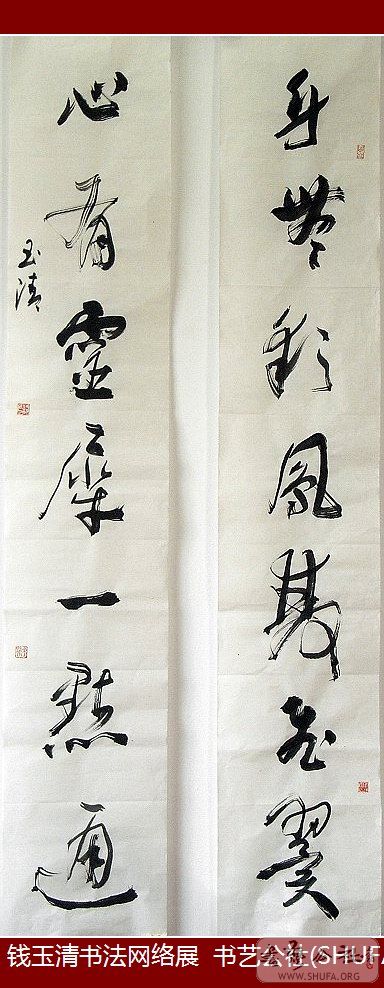 身無彩鳳雙飛翼
心有靈犀一點通
玉清
钱玉清书法网络展 书艺公社(SHUFA
书艺公社
WWW.SHUFA.ORG